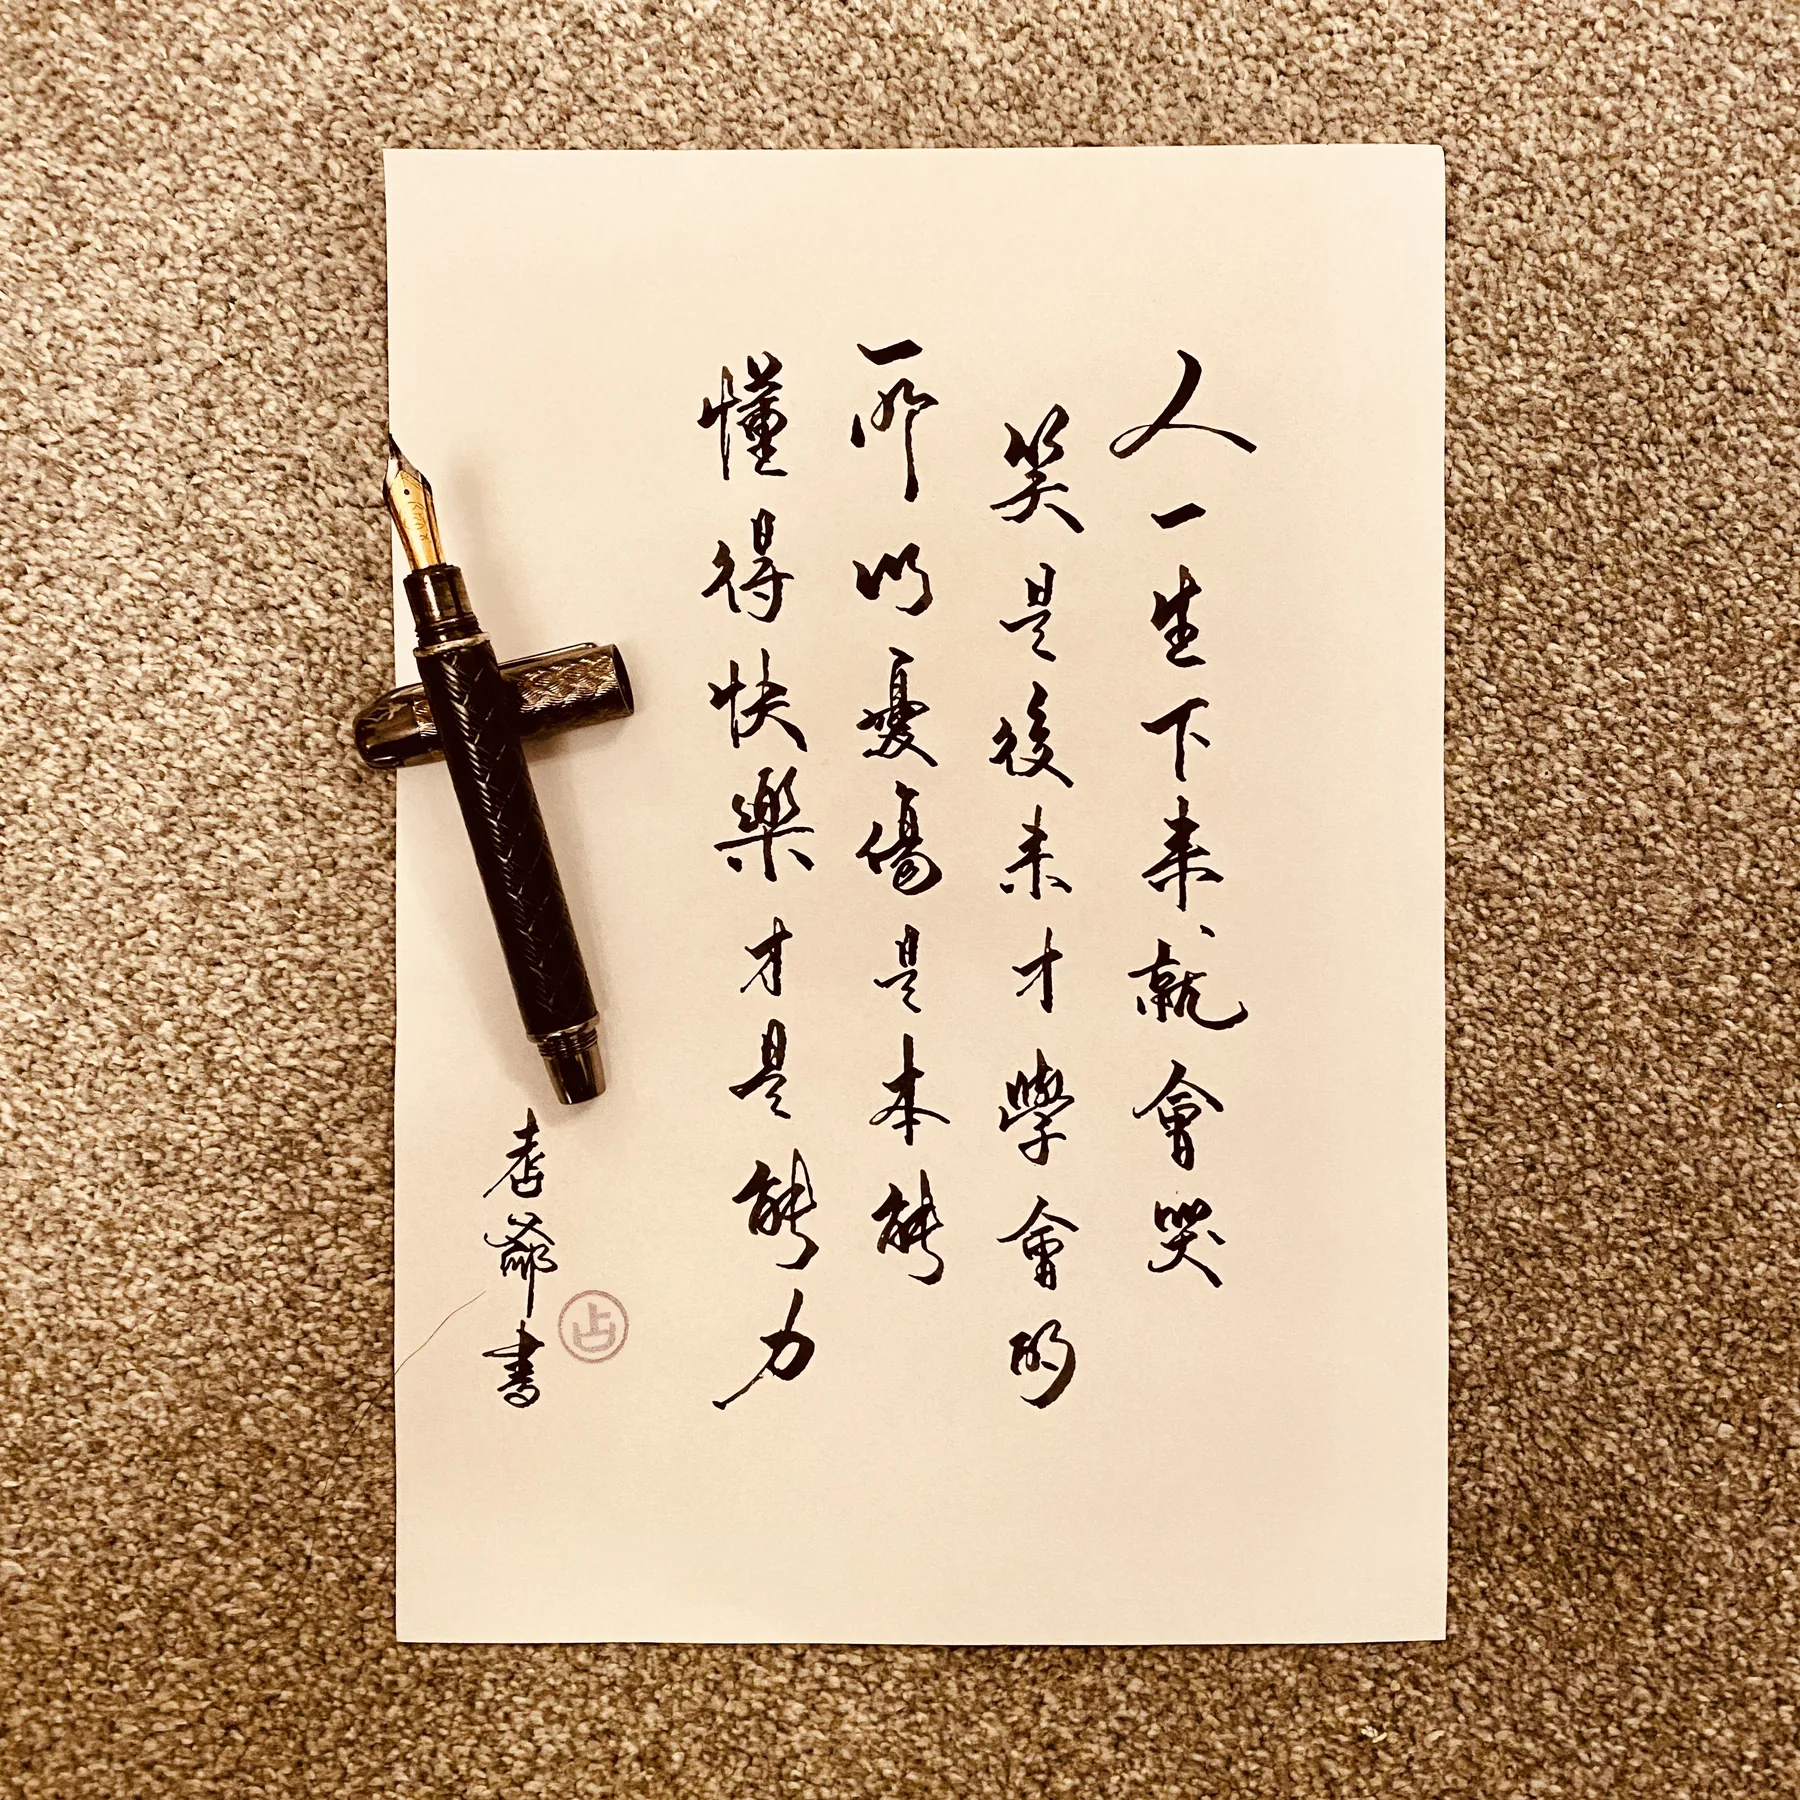 人一生下来就會哭
笑是後来才學會的
所以憂傷是本能
懂得快樂才是能力
爺書
占